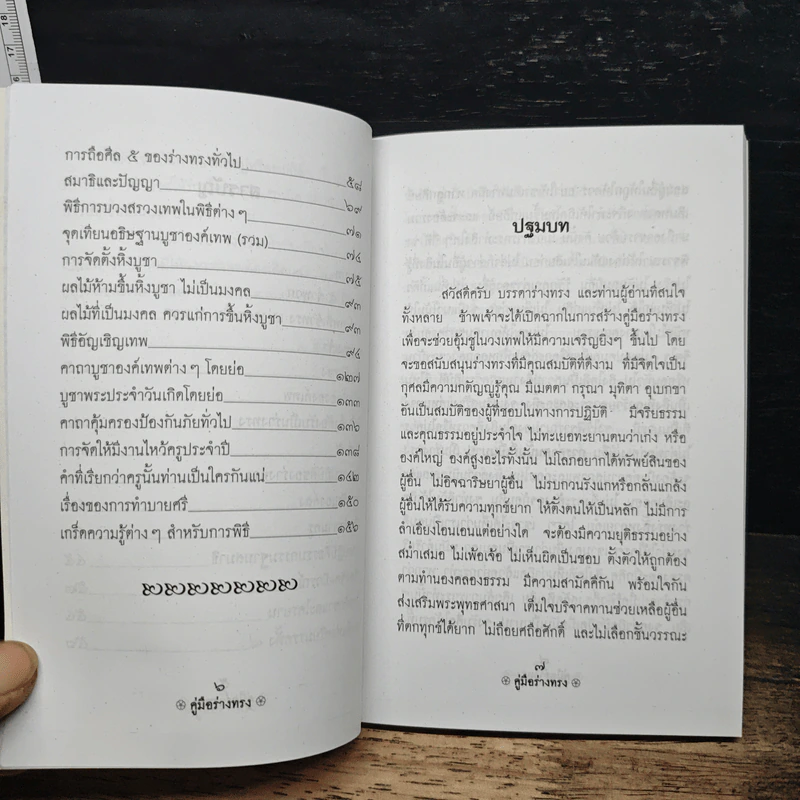 18
17
16
การถือศีล ๕ ของร่างทรงทั่วไป ๕๘
สมาธิและปัญญา ๖๙
พิธีการบวงสรวงเทพในพิธีต่าง ๆ ๗๑
จุดเทียนอธิษฐานบูชาองค์เทพ (รวม) ๗๔
การจัดตั้งหิ้งบูชา ๗๕
ผลไม้ห้ามขึ้นหิ้งบูชา ไม่เป็นมงคล ๙๓
ผลไม้ที่เป็นมงคล ควรแก่การขึ้นหิ้งบูชา ๙๓
พิธีอัญเชิญเทพ ๙๔
คาถาบูชาองค์เทพต่าง ๆ โดยย่อ ๑๒๗
บูชาพระประจำวันเกิดโดยย่อ ๑๓๓
คาถาคุ้มครองป้องกันภัยทั่วไป ๑๓๖
การจัดให้มีงานไหว้ครูประจำปี ๑๓๘
คำที่เรียกว่าครูนั้นท่านเป็นใครกันแน่ ๑๔๒
เรื่องของการทำบายศรี ๑๕๐
เกร็ดความรู้ต่าง ๆ สำหรับการพิธี ๑๕๖
๖
คู่มือร่างทรง
ปฐมบท
สวัสดีครับ บรรดาร่างทรง และท่านผู้อ่านที่สนใจ
ทั้งหลาย ข้าพเจ้าจะได้เปิดฉากในการสร้างคู่มือร่างทรง
เพื่อจะช่วยอุ้มชูในวงเทพให้มีความเจริญยิ่งๆ ขึ้นไป โดย
จะขอสนับสนุนร่างทรงที่มีคุณสมบัติที่ดีงาม ที่มีจิตใจเป็น
กุศลมีความกตัญญูรู้คุณ มีเมตตา กรุณา มุทิตา อุเบกขา
อันเป็นสมบัติของผู้ที่ชอบในทางการปฏิบัติ มีจริยธรรม
และคุณธรรมอยู่ประจำใจ ไม่ทะเยอทะยานตนว่าเก่ง หรือ
องค์ใหญ่ องค์สูงอะไรทั้งนั้น ไม่โลภอยากได้ทรัพย์สินของ
ผู้อื่น ไม่อิจฉาริษยาผู้อื่น ไม่รบกวนรังแกหรือกลั่นแกล้ง
ผู้อื่นให้ได้รับความทุกข์ยาก ให้ตั้งตนให้เป็นหลัก ไม่มีการ
ลำเอียงโอนเอนแต่อย่างใด จะต้องมีความยุติธรรมอย่าง
สม่ำเสมอ ไม่เพ้อเจ้อ ไม่เห็นผิดเป็นชอบ ตั้งตัวให้ถูกต้อง
ตามทำนองคลองธรรม มีความสามัคคีกัน พร้อมใจกัน
ส่งเสริมพระพุทธศาสนา เต็มใจบริจาคทานช่วยเหลือผู้อื่น
ที่ตกทุกข์ได้ยาก ไม่ถือยศถือศักดิ์ และไม่เลือกชั้นวรรณะ
๗
คู่มือร่างทรง